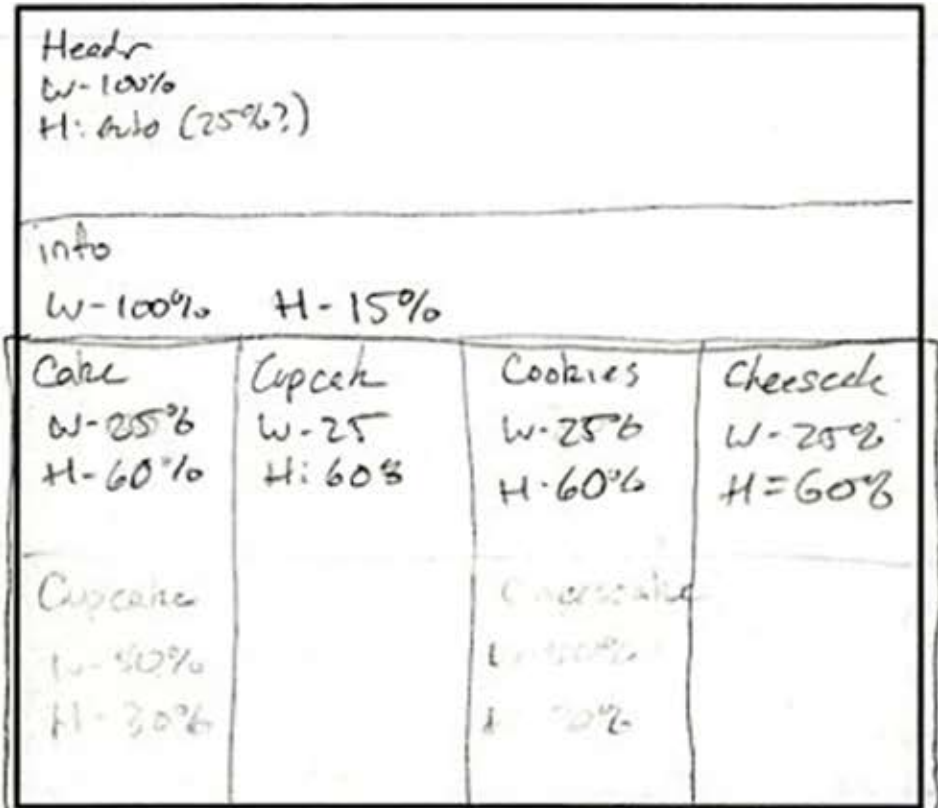 Header
W-100%
H: Auto (25%?)
info
W-100% H-15%
Cake
W-25%
H-60%
Cupcak
W-25
H: 60%
Cookies
W-25%
H-60%
Cheesecak
W-25%
H=60%
Cupcake
W-50%
H-30%
Cheesecake